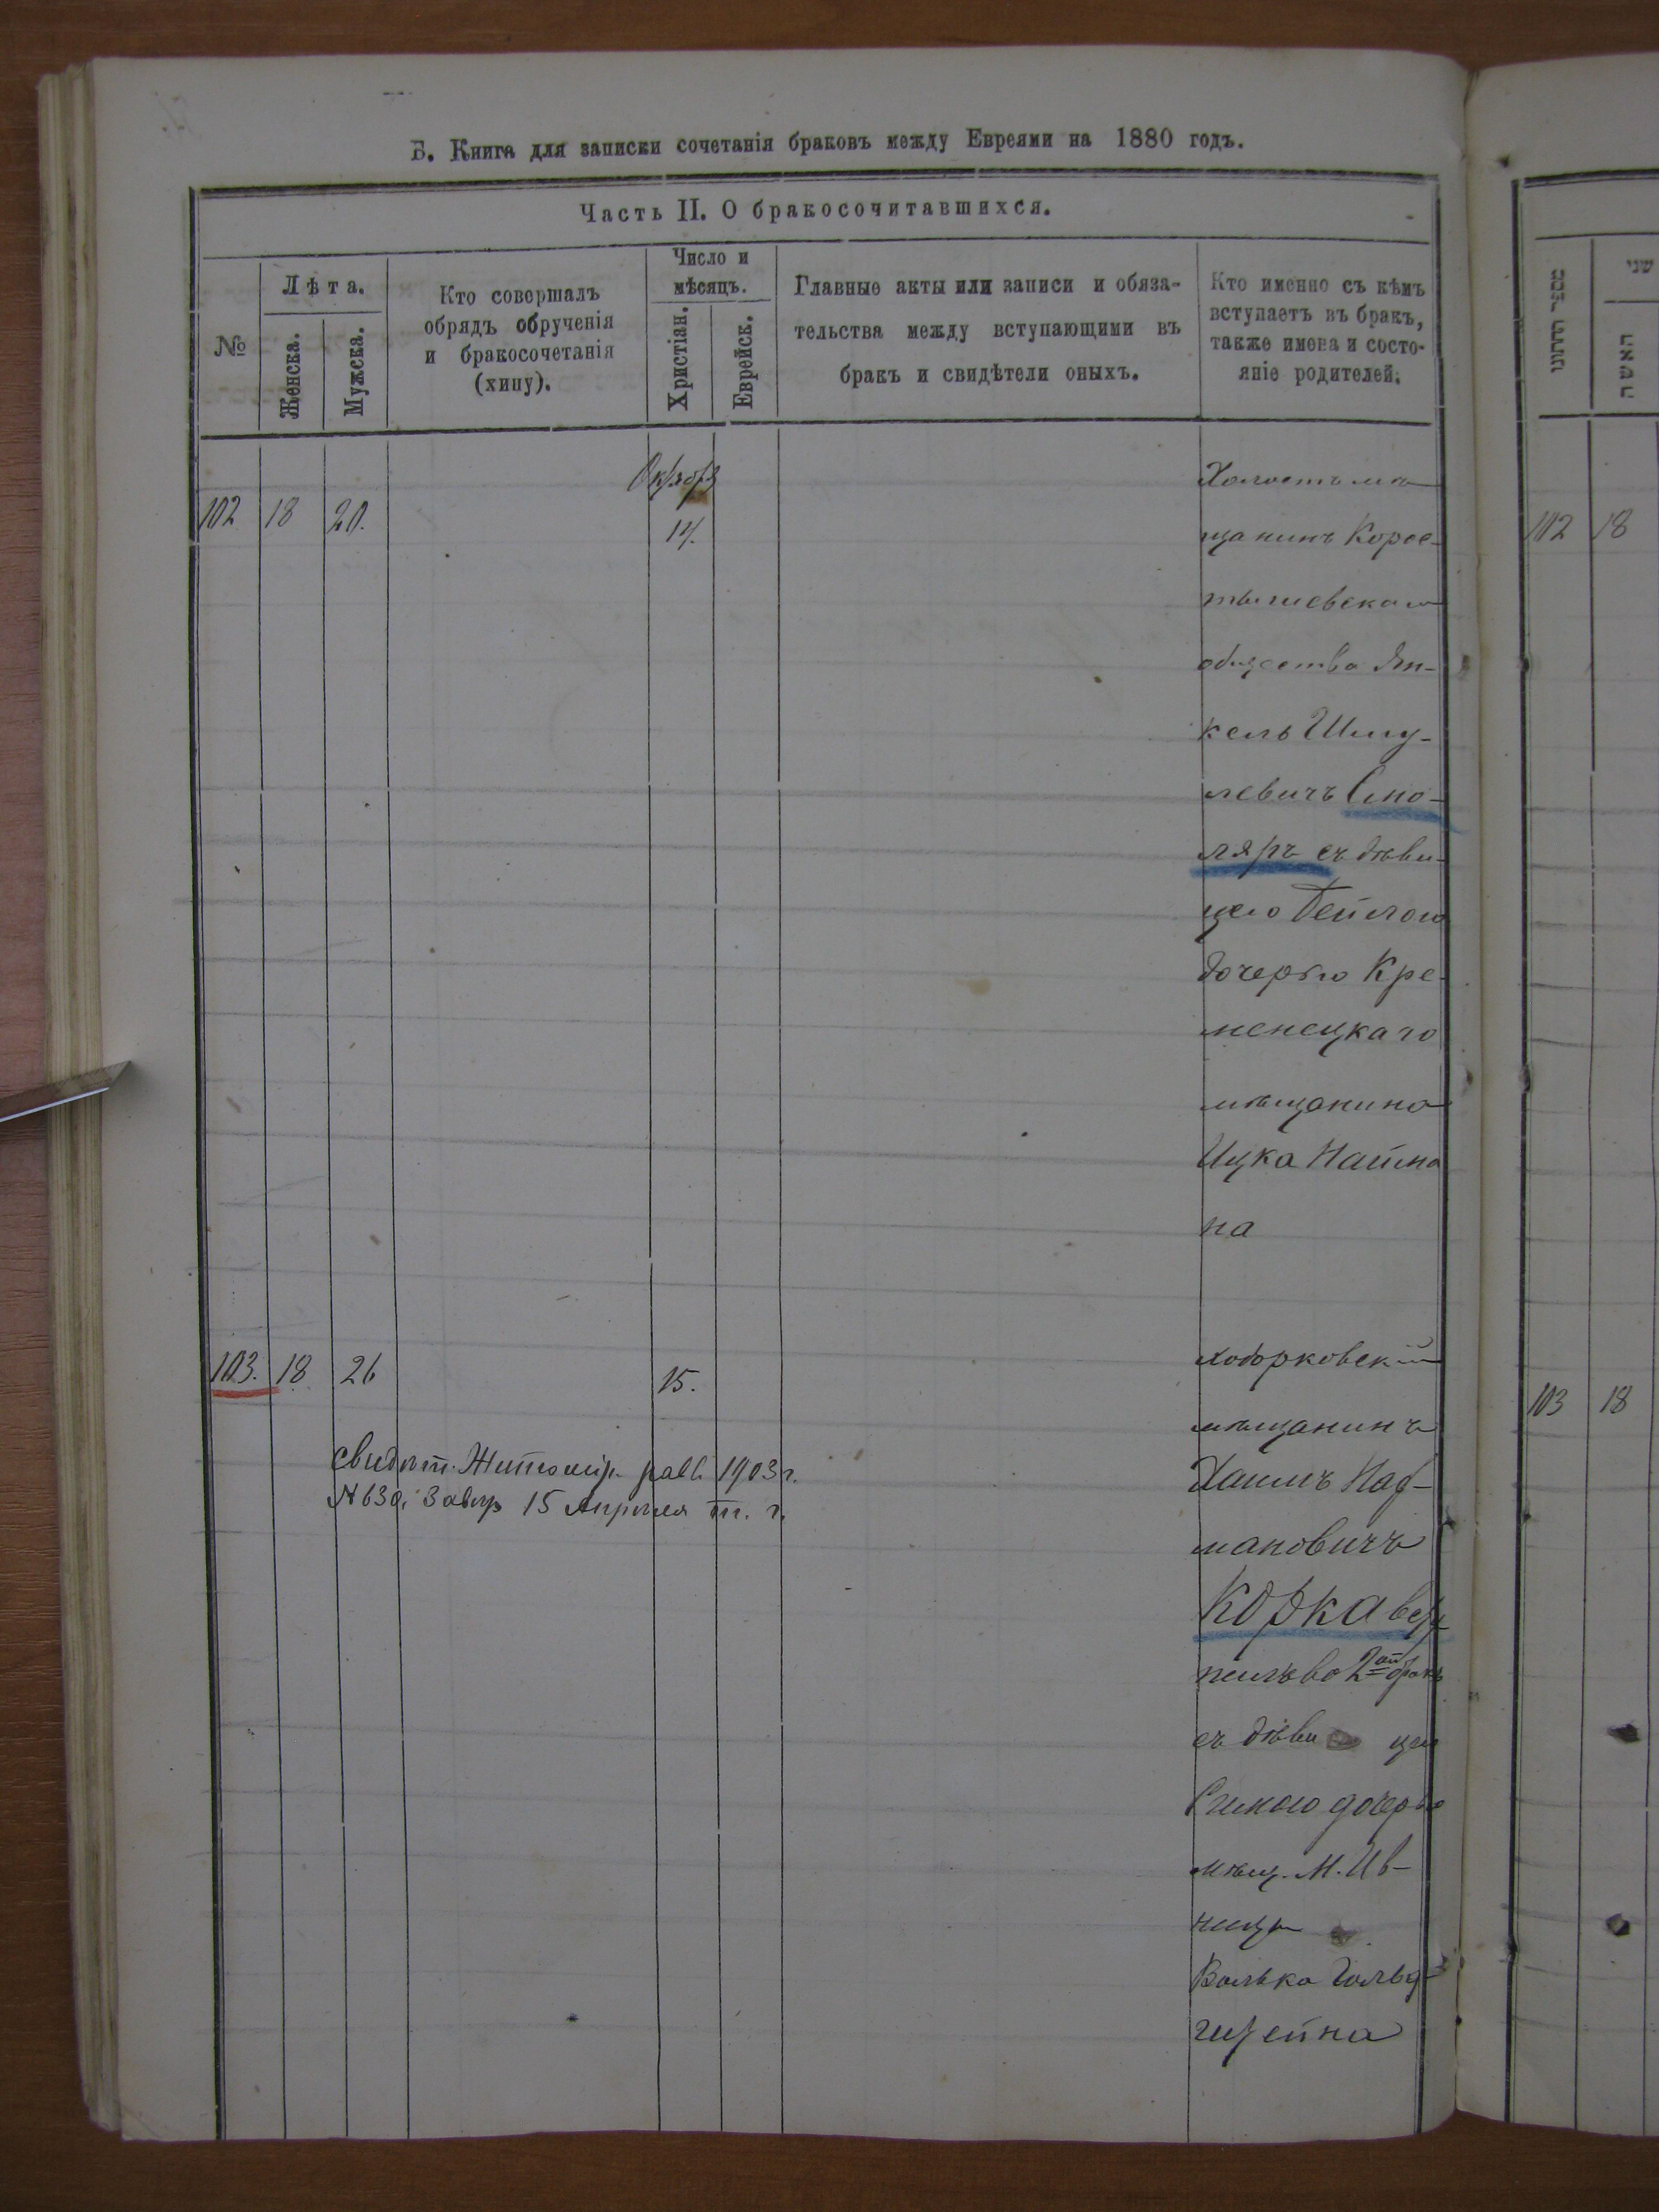 Б. Книга для записки сочетанія браковъ между Евреями на 1880 годъ.
Часть II. О бракосочитавшихся.
№
Лѣта.
Женска.
Мужска.
Кто совершалъ
обрядъ обрученія
и бракосочетанія
(хипу).
Число и
мѣсяцъ.
Христіан.
Еврейск.
Главные акты или записи и обяза-
тельства между вступающими въ
бракъ и свидѣтели оныхъ.
Кто именно съ кѣмъ
вступаетъ въ бракъ,
также имена и состо-
яніе родителей.
מספר החתוני
שני
האשה
Октября
102 18 20. 14.
Холостъ мѣ
щанинъ Корос-
тышевскаго
общества Ян-
кель Шму-
левичъ Сто-
ляръ съ дѣви-
цею Бейлою
дочерью Кре-
менецкаго
мѣщанина
Ицка Наймa
на
102 18
103. 18 26 15.
Свидѣт. Житомір. равв. 1903 г.
N 630, Завѣр 15 Апрѣля т. г.
Ходорковскій
мѣщанинъ
Хаимъ Наф-
мановичъ
Коржа всту
пилъ во 2ой бракъ
съ дѣви цею
Симою дочерью
мѣщ. М. Ив-
ницы
Волька Гольд-
штейна
103 18